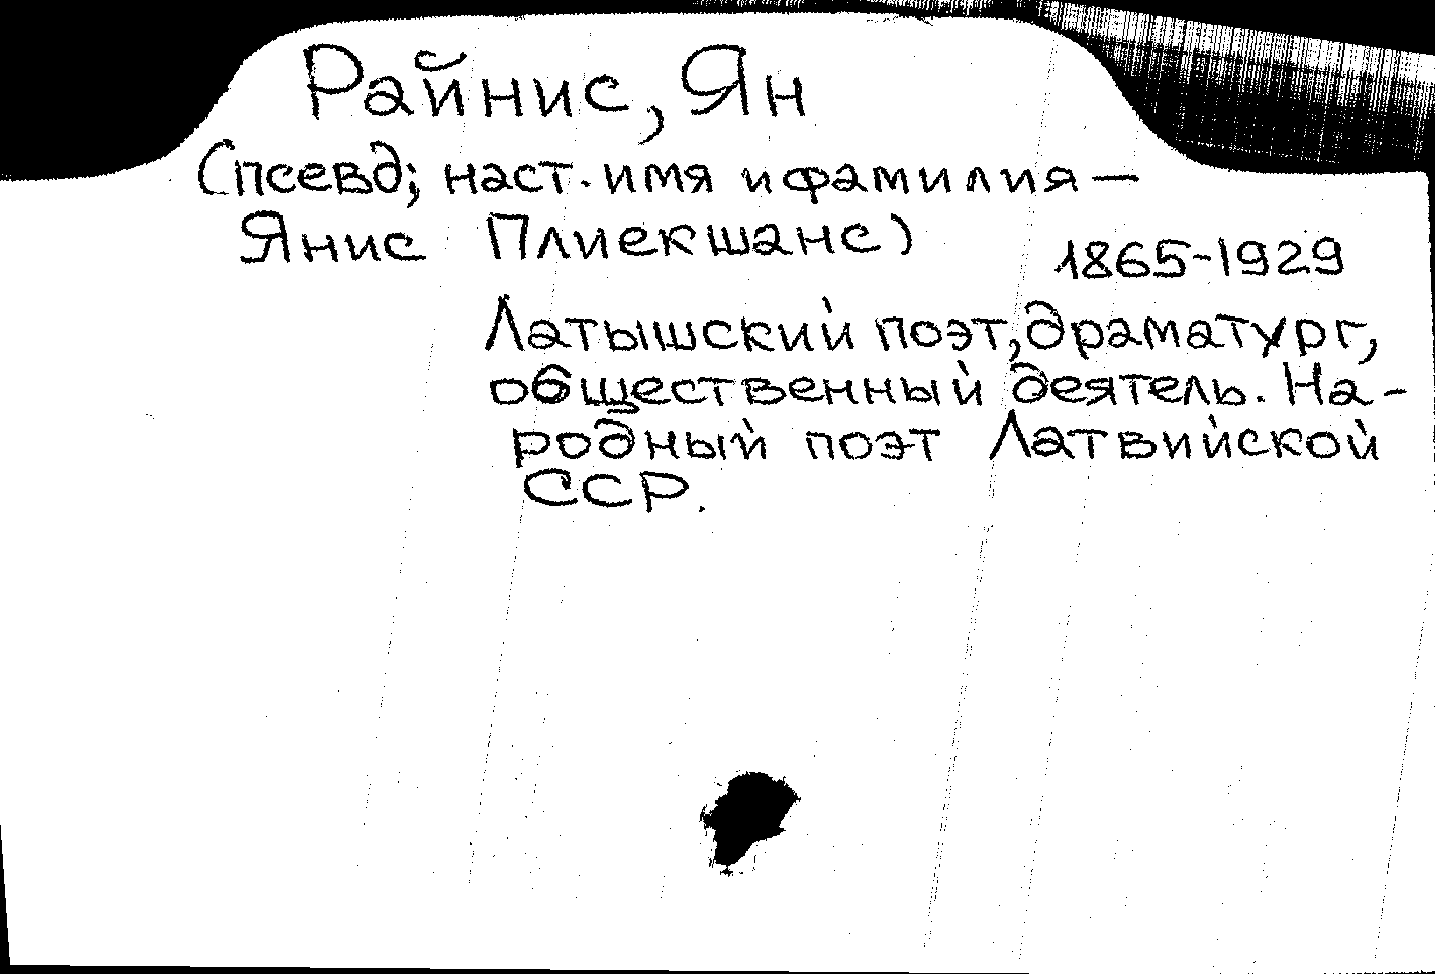 Райнис, Ян
(псевд; наст. имя и фамилия —
Янис Плиекшанс)
1865-1929
Латышский поэт, драматург,
общественный деятель. На-
родный поэт Латвийской
ССР.